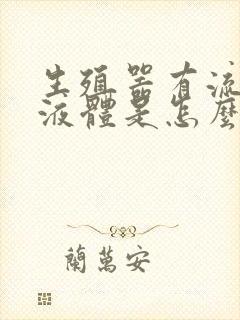 生殖器有流
液體是怎麼
蘭萬安